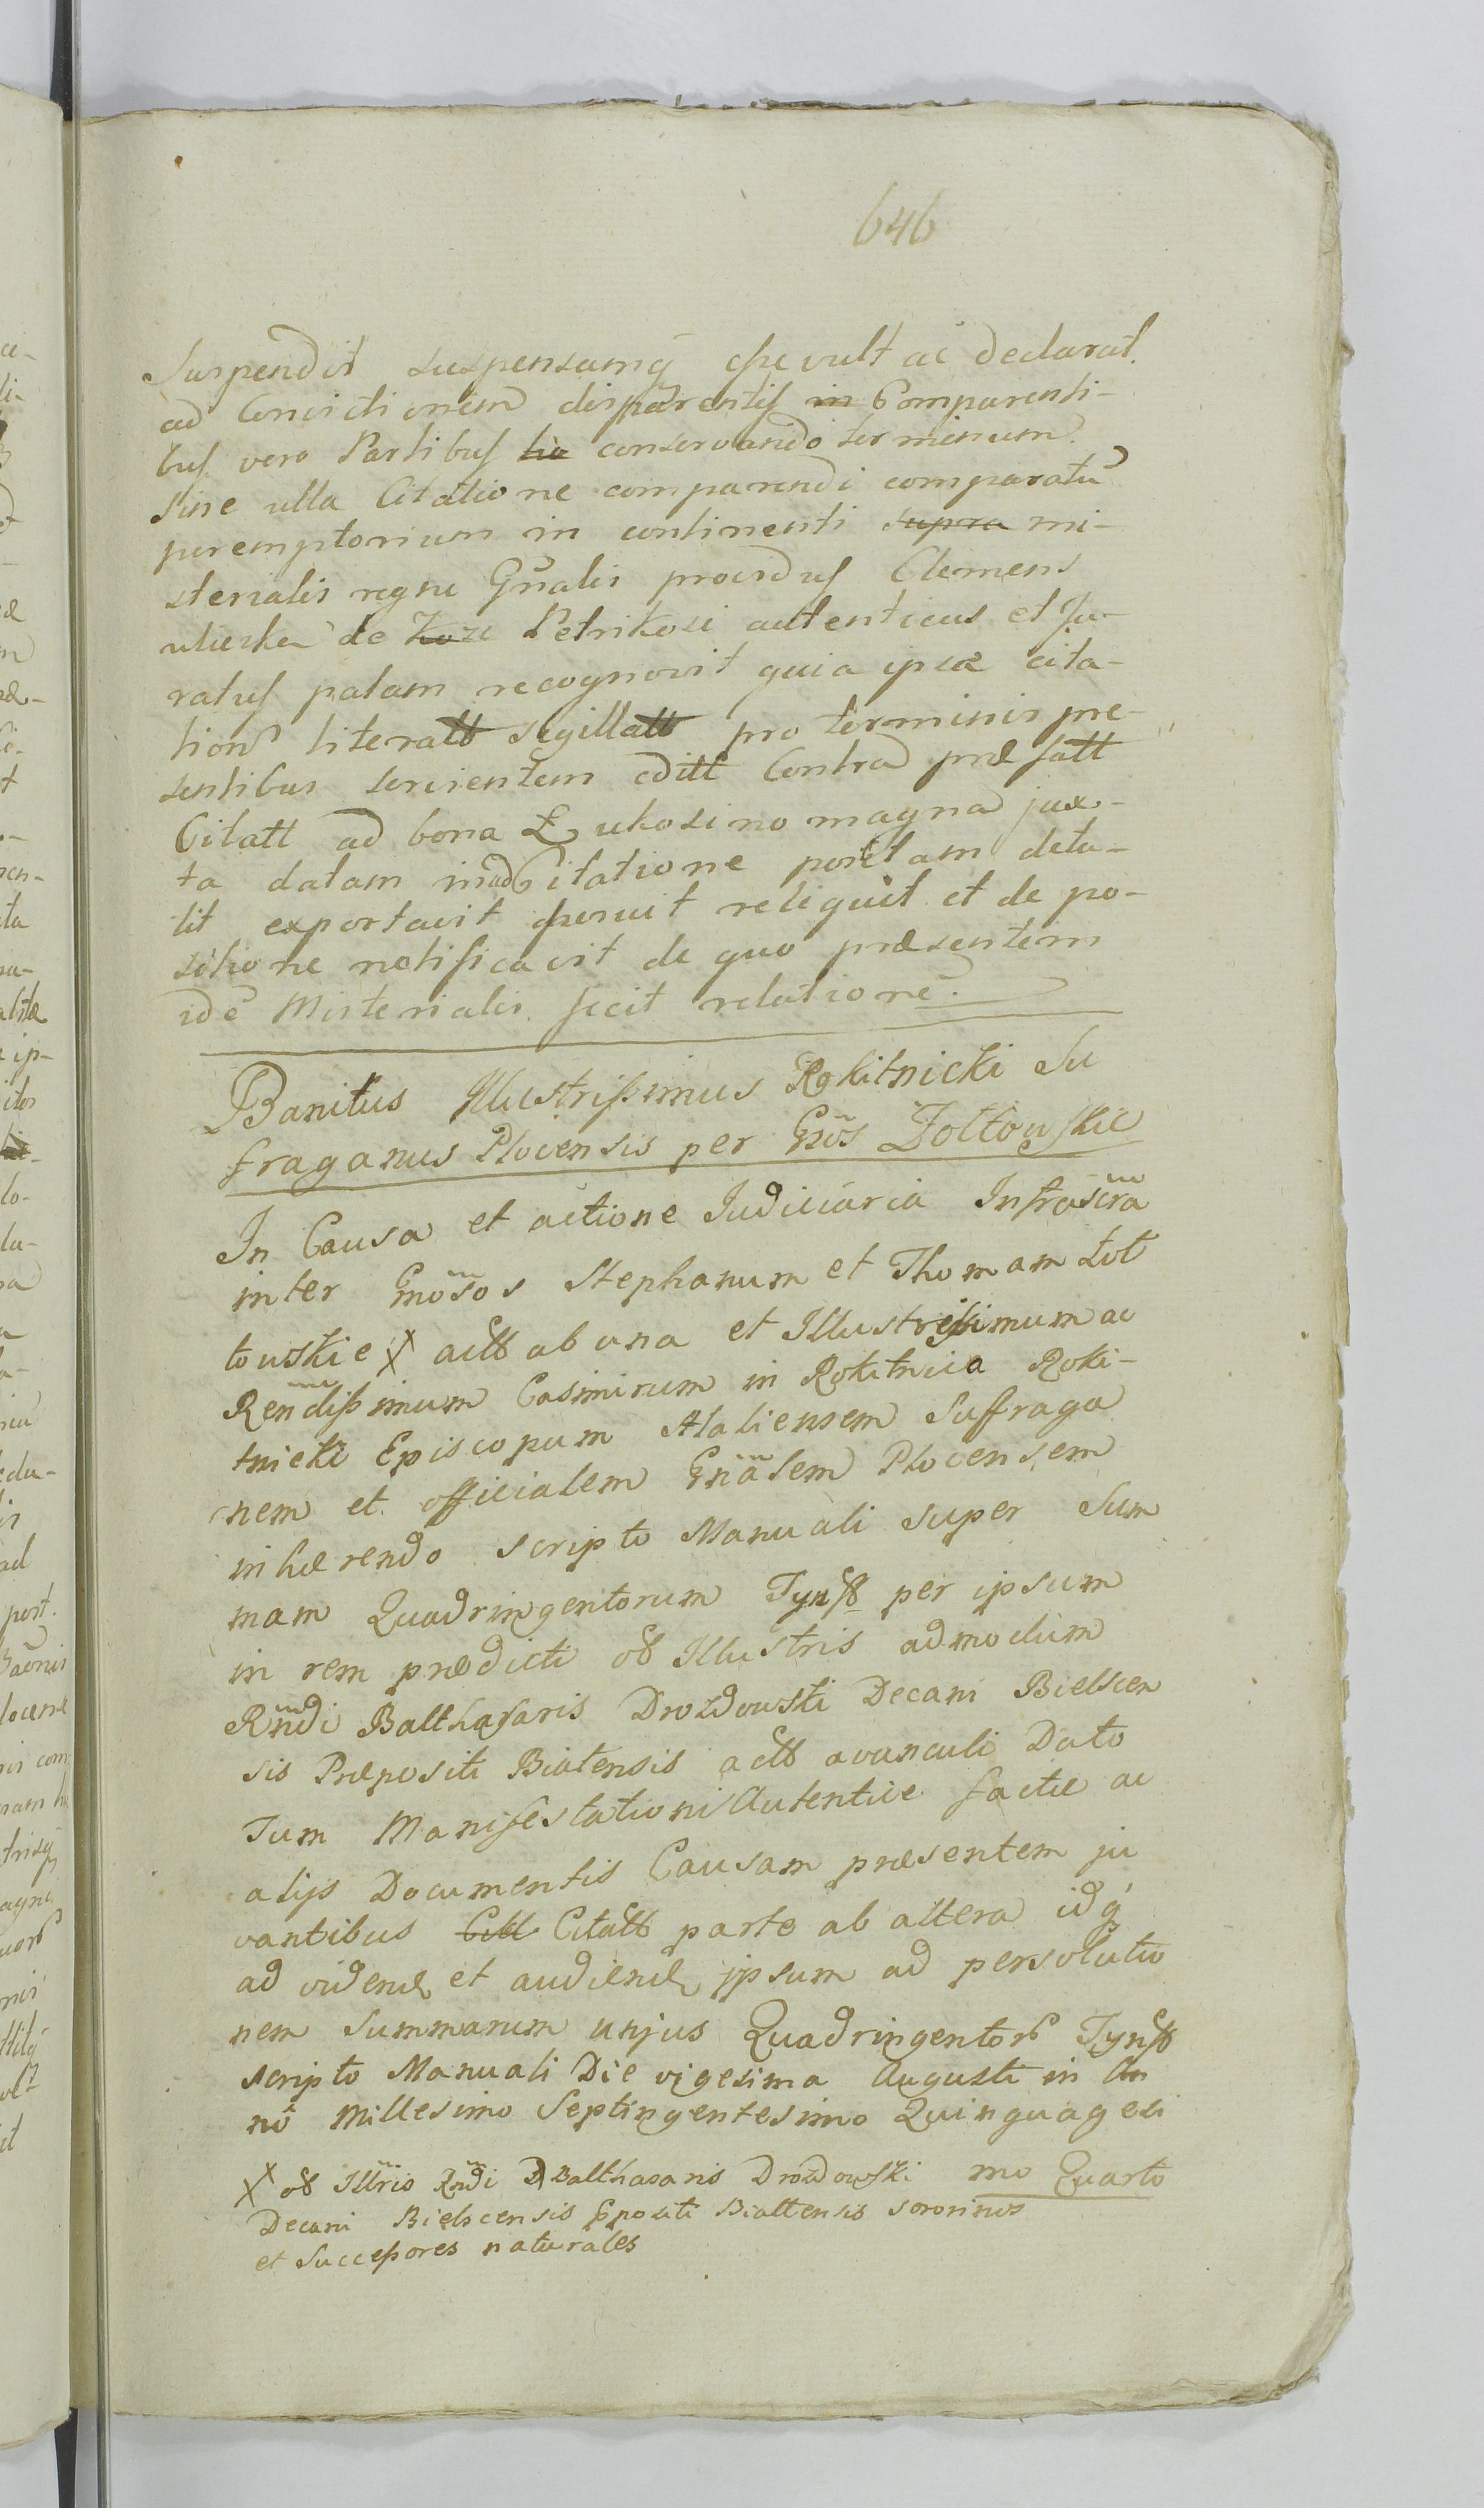 646
Suspendit suspensamq̃ esse vult ac declarat
ad Convictionem disparentis in Comparenti-
bus vero Partibus hic conservando terminum
sine ulla Citatione comparendi comparatũ
peremptorium in continenti supra mi-
sterialis regni Gn̄alis providus Clemens
de Petrikozi autenticus et Ju-
ratus palam recognovit quia ipse cita-
tion̄ literatt sigillatt pro terminis pre-
sentibus servientem editt Contra præfatt
Citatt ad bona Łukosino magna jux-
ta datam in ead Citatione positam detu-
lit exportavit posuit reliquit et de po-
sitione notificavit de quo præsentem
idē Misterialis fecit relationē.
Banitus Illustrissimus Rokitnicki Su
fraganus Plocensis per Gn̄os Żołtowskie
In Causa et actione Judiciaria Infrascrã
inter Gn̄osos Stephanum et Thomam Żoł
towskie X actt ab una et Illustrissimum ac
Ren̄dissimum Casimirum in Rokitnica Roki-
tnicki Episcopum Ataliensem Suffraga
nem et officialem Gn̄alem Plocensem
inhærendo scripto Manuali super Sum
mam Quadringentorum Tynff per ipsum
in rem prædicti o͠ł Illustris admodum
Rn̄di Balthasaris Drozdowski Decani Bielscen
sis Præpositi Białensis actt avunculi Dato
Tum Manifestationi Autentice factæ ac
alijs Documentis Causam præsentem ju
vantibus Citt Citatt parte ab altera idq̃
ad videnđ et audienđ ipsum ad persolutio
nem Summarum unjus Quadringentor̃ Tynff
scripto Manuali Die vigesima Augusti in An
nō Millesimo Septingentesimo Quinquagesi
mo Quarto
X o͠ł Illris Rn̄di D Balthasaris Drozdowski
Decani Bielscensis Ppositi Białtensis sororinos
et Successores naturales